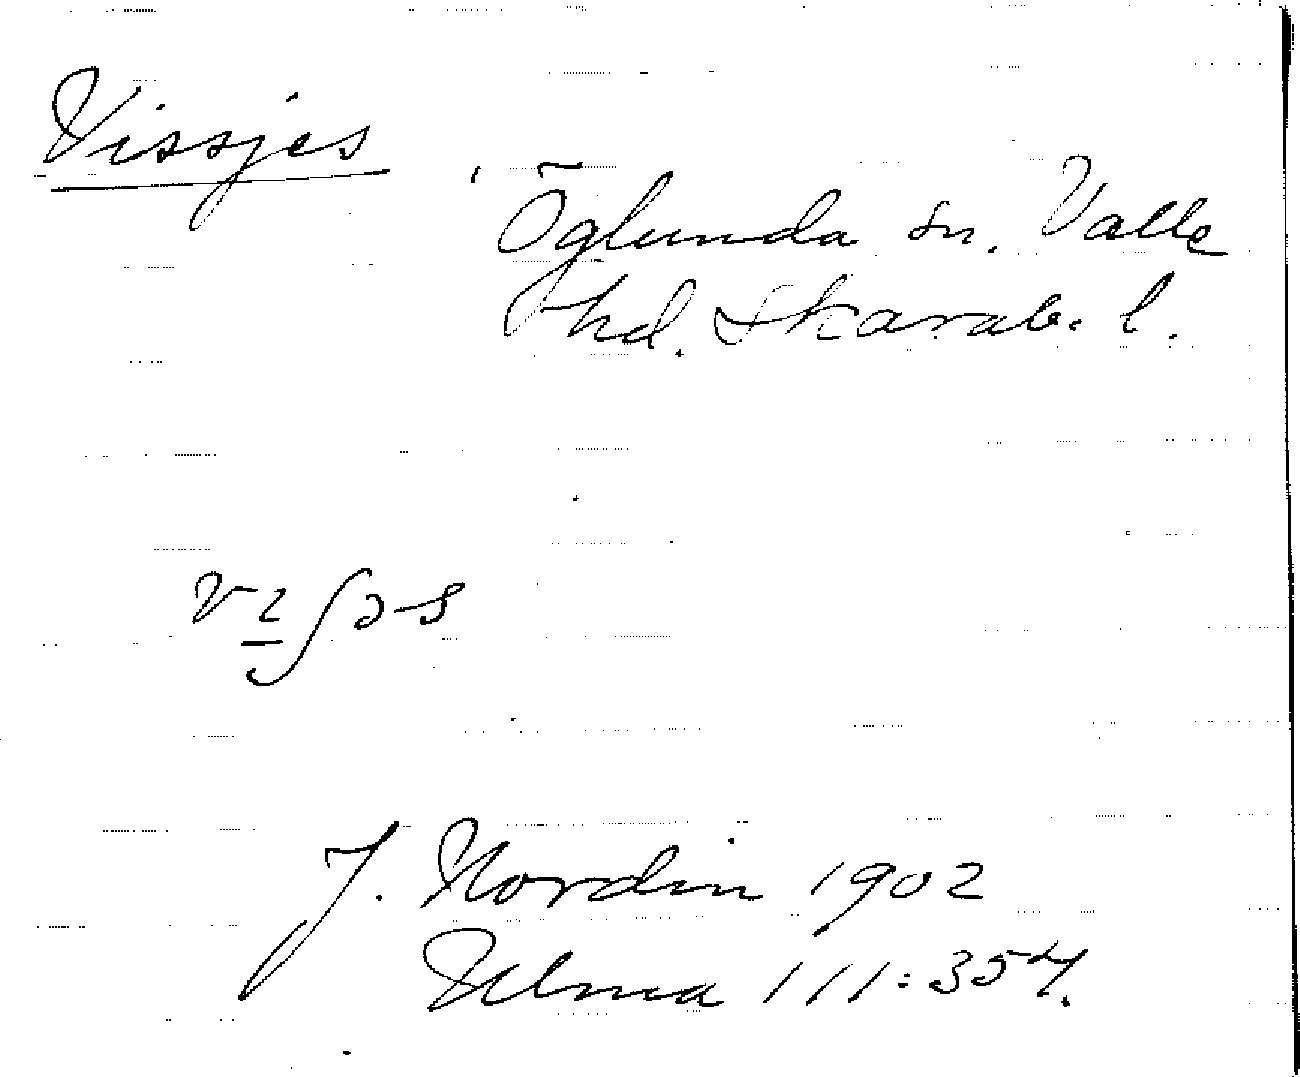 Vissjes
Öglunda sn. Valle
hd. Skarab. l.
J. Nordin 1902
Ulma 111:357.